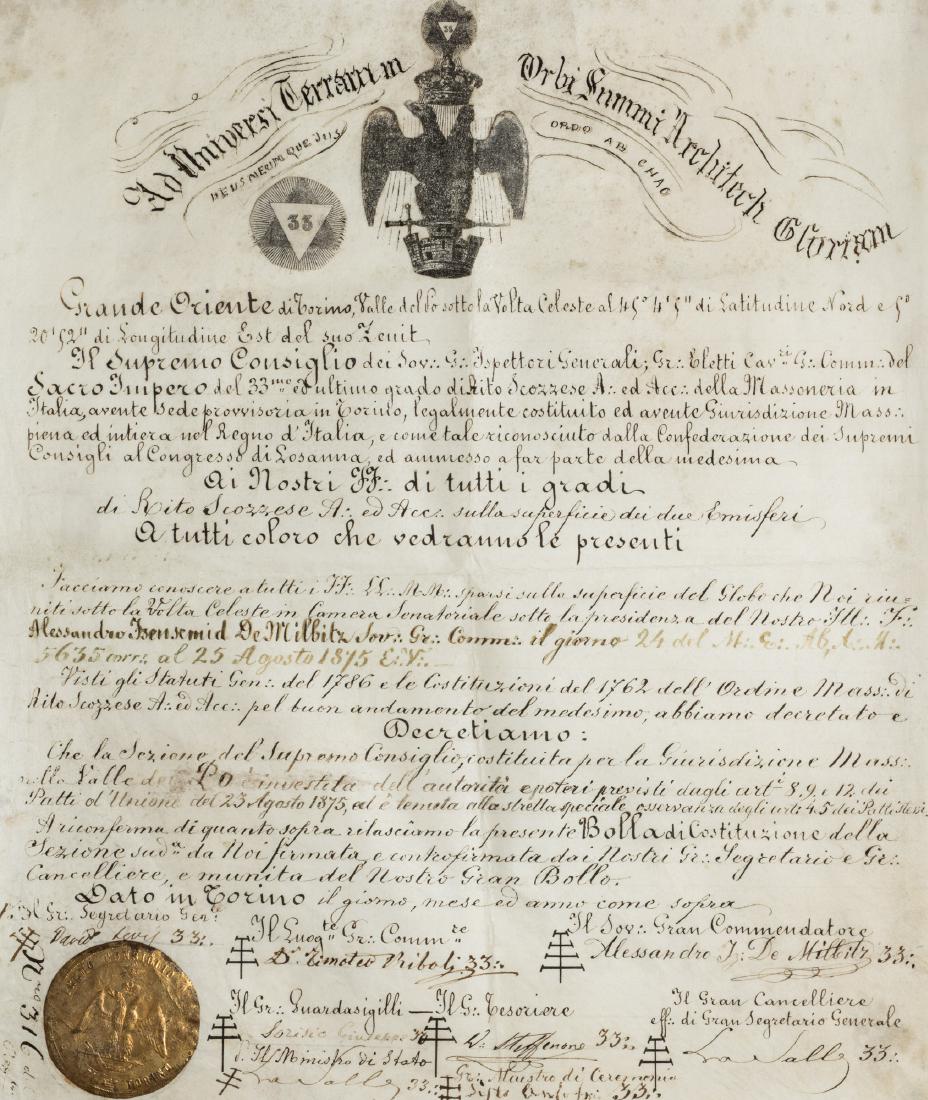 Ad Universi Terrarum Orbi Summi Architecti Gloriam
DEUS MEUMQUE JUS
ORDO AB CHAO
33
33
Grande Oriente di Torino, Valle del Po sotto la Volta Celeste al 45° 4' 5" di Latitudine Nord e 5°
20' 52" di Longitudine Est del suo Zenit
Il Supremo Consiglio dei Sov∴ G∴ Ispettori Generali; Gr∴ Eletti Cav.ri G∴ Comm∴ del
Sacro Impero del 33mo ed ultimo grado di Rito Scozzese A∴ ed Acc∴ della Massoneria in
Italia, avente Sede provvisoria in Torino, legalmente costituito ed avente Giurisdizione Mass∴
piena ed intiera nel Regno d'Italia, e come tale riconosciuto dalla Confederazione dei Supremi
Consigli al Congresso di Losanna, ed ammesso a far parte della medesima
Ai Nostri FF∴ di tutti i gradi
di Rito Scozzese A∴ ed Acc∴ sulla superficie dei due Emisferi
A tutti coloro che vedranno le presenti
Facciamo conoscere a tutti i FF∴ LL∴ MM∴ sparsi sulla superficie del Globo che Noi riu-
niti sotto la Volta Celeste in Camera Senatoriale sotto la presidenza del Nostro Ill∴ F∴
Alessandro De Milbitz Sov∴ Gr∴ Comm∴ il giorno 24 del M∴ E∴ Ab, A∴ M∴
5635 corr∴ al 25 Agosto 1875 E∴ V∴
Visti gli Statuti Gen∴ del 1786 e le Costituzioni del 1762 dell' Ordine Mass∴ di
Rito Scozzese A∴ ed Acc∴ pel buon andamento del medesimo, abbiamo decretato e
Decretiamo:
Che la Sezione del Supremo Consiglio, costituita per la Giurisdizione Mass∴
nella Valle del Po è investita dell' autorità e poteri previsti dagli art.i 8, 9, e 12 dei
Patti d'Unione del 23 Agosto 1875, ed è tenuta alla stretta speciale osservanza degli arti 4.5 dei Patti stessi
A riconferma di quanto sopra rilasciamo la presente Bolla di Costituzione della
Sezione sud.a da Noi firmata, e controfirmata dai Nostri Gr∴ Segretario e Gr∴
Cancelliere, e munita del Nostro Gran Bollo.
Dato in Torino il giorno, mese ed anno come sopra
Il Gr∴ Segretario Gen.le
David Levi 33∴
Il Luog.te Gr∴ Comm.re
D.r Timoteo Riboli 33∴
Il Sov∴ Gran Commendatore
Alessandro I∴ De Milbitz 33∴
Nno 316
Il Gr∴ Guardasigilli
Giuseppe 33
Il G∴ Tesoriere
33∴
Il Gran Cancelliere
eff∴ di Gran Segretario Generale
La Salle 33∴
Il Minist.o di Stato
La Salle 33∴
Gr∴ Maestro di Cerimonie
33∴